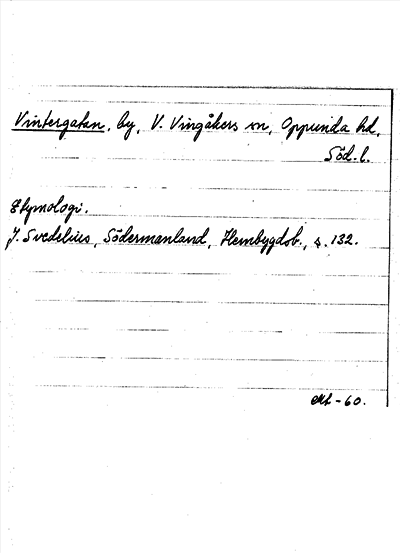 Vintergatan, by, V. Vingåkers sn, Oppunda hd,
Söd. l.
Etymologi.
J. Svedelius, Södermanland, Hembygdsb., s. 132.
-60.